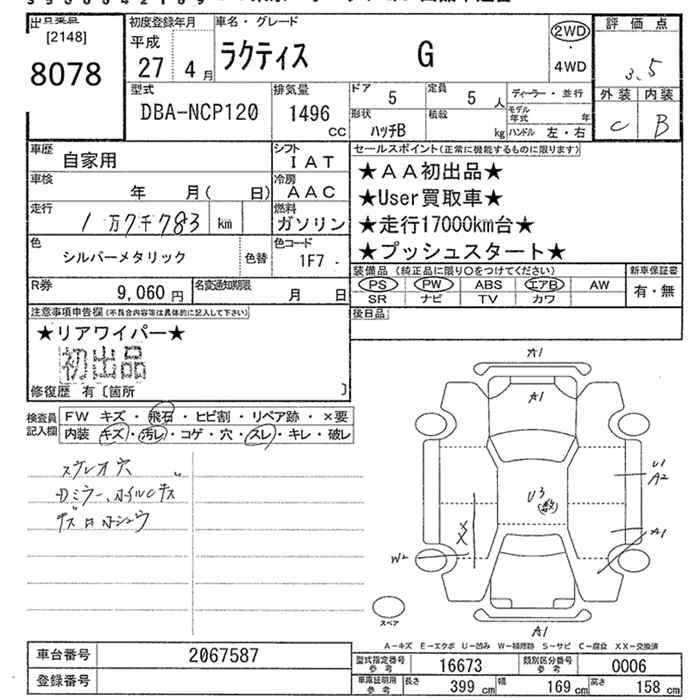 [2148]
8078
初度登録年月
平成
27 4月
車名・グレード
ラクティス G
2WD
4WD
評価点
3.5
外装 内装
C B
型式
DBA-NCP120
排気量
1496
CC
ドア
5
定員
5人
ディーラー・並行
形状
ハッチB
積載
kg
モデル年式
年
ハンドル 左・右
車歴
自家用
シフト
IAT
車検
年 月( 日)
冷房
AAC
走行
1万7千783 km
燃料
ガソリン
色
シルバーメタリック
色替
色コード
1F7 -
R券
9,060円
名変通知期限
月 日
セールスポイント(正常に機能するものに限ります)
★AA初出品★
★User買取車★
★走行17000km台★
★プッシュスタート★
装備品 (純正品に限り○をつけてください)
新車保証書
PS PW ABS エアB AW
SR ナビ TV カワ
有・無
後日品
注意事項申告欄(不具合内容等は具体的に記入して下さい)
★リアワイパー★
初出品
修復歴 有〔箇所 〕
検査員記入欄
FW キズ・飛石・ヒビ割・リペア跡・×要
内装 キズ・汚レ・コゲ・穴・スレ・キレ・破レ
ステレオ穴
A1
A1
U1
A2
U3
XX
W2
A1
A1
スペア
A−キズ E−エクボ U−凹み W−補修跡 S−サビ C−腐食 XX−交換済
車台番号
2067587
登録番号
型式指定番号
参考
16673
類別区分番号
参考
0006
車庫証明用
参考
長さ
399 cm
幅
169 cm
高さ
158 cm